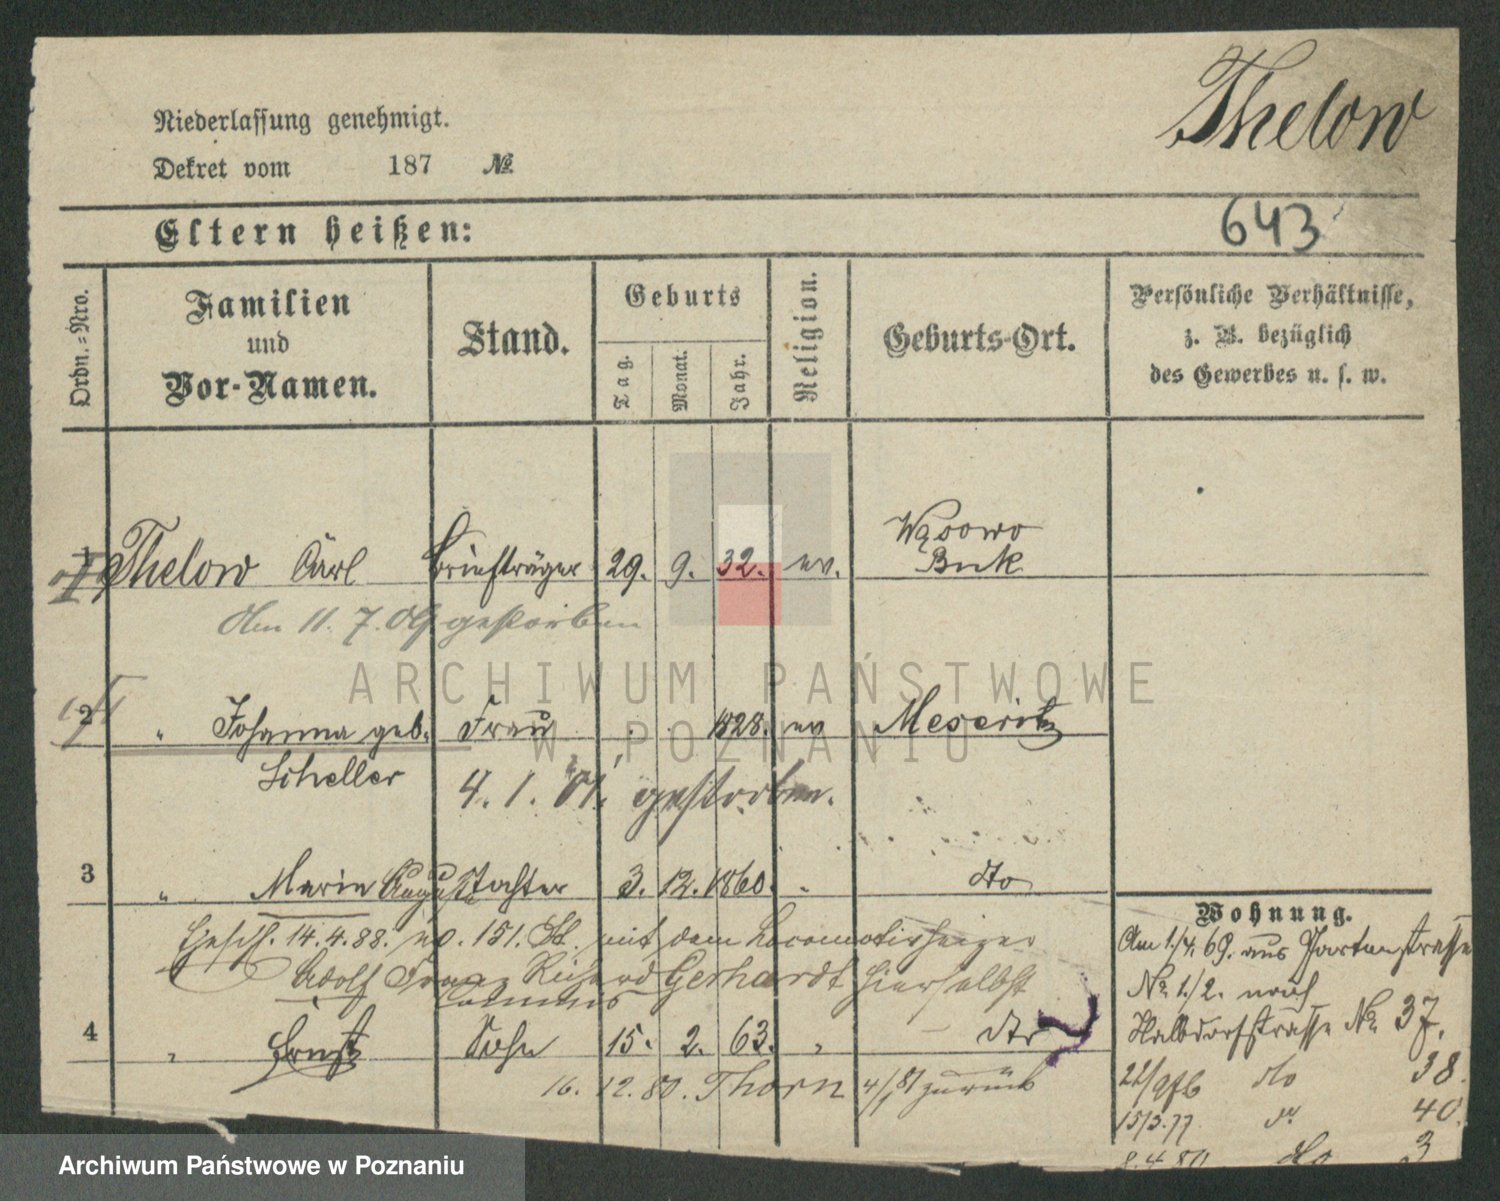 Thelow
Niederlassung genehmigt.
Dekret vom 187 №
643
Eltern heißen:
Ordn.=Nro.
Familien
und
Vor-Namen.
Stand.
Geburts
Tag.
Monat.
Jahr.
Religion.
Geburts-Ort.
Persönliche Verhältnisse,
z. B. bezüglich
des Gewerbes u. s. w.
1 Thelow Carl Briefträger 29. 9. 32. ev. Wąsowo
Buk
Am 11. 7. gestorben
2 " Johanna geb. Frau 1828. ev Meseritz
Scheller
4. 1. 01. gestorben.
3 " Marie Auguste Tochter 3. 12. 1860. " dto
Ehesch. 14.4.88. No. 151. St. mit dem Locomotivheizer
Adolf Franz Richard Gerhardt hierselbst
4 " Ernst Sohn 15. 2. 63. " dto
16. 12. 80. Thorn 4/1 81 zurück
Wohnung.
Am 1./4. 69. aus Gartenstrasse
No. 1/2. nach
Halbdorfstrasse No. 37.
22/9 do 38.
15/3.77 do 40.
8.4.80 do 3
ARCHIWUM PAŃSTWOWE
W POZNANIU
Archiwum Państwowe w Poznaniu